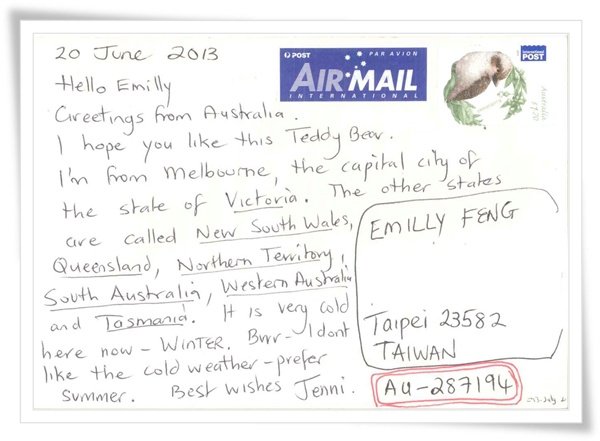 20 June 2013
Hello Emilly
Greetings from Australia.
I hope you like this Teddy Bear.
I'm from Melbourne, the capital city of
the state of Victoria. The other states
are called New South Wales,
Queensland, Northern Territory,
South Australia, Western Australia
and Tasmania. It is very cold
here now - WINTER. Brrr - I dont
like the cold weather - prefer
summer. Best wishes Jenni.
POST PAR AVION
AIR MAIL
INTERNATIONAL
International
POST
Australia
$1.70
EMILLY FENG
Taipei 23582
TAIWAN
AU-287194